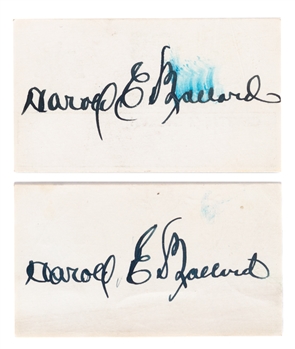 Harold E Ballard
Harold E Ballard